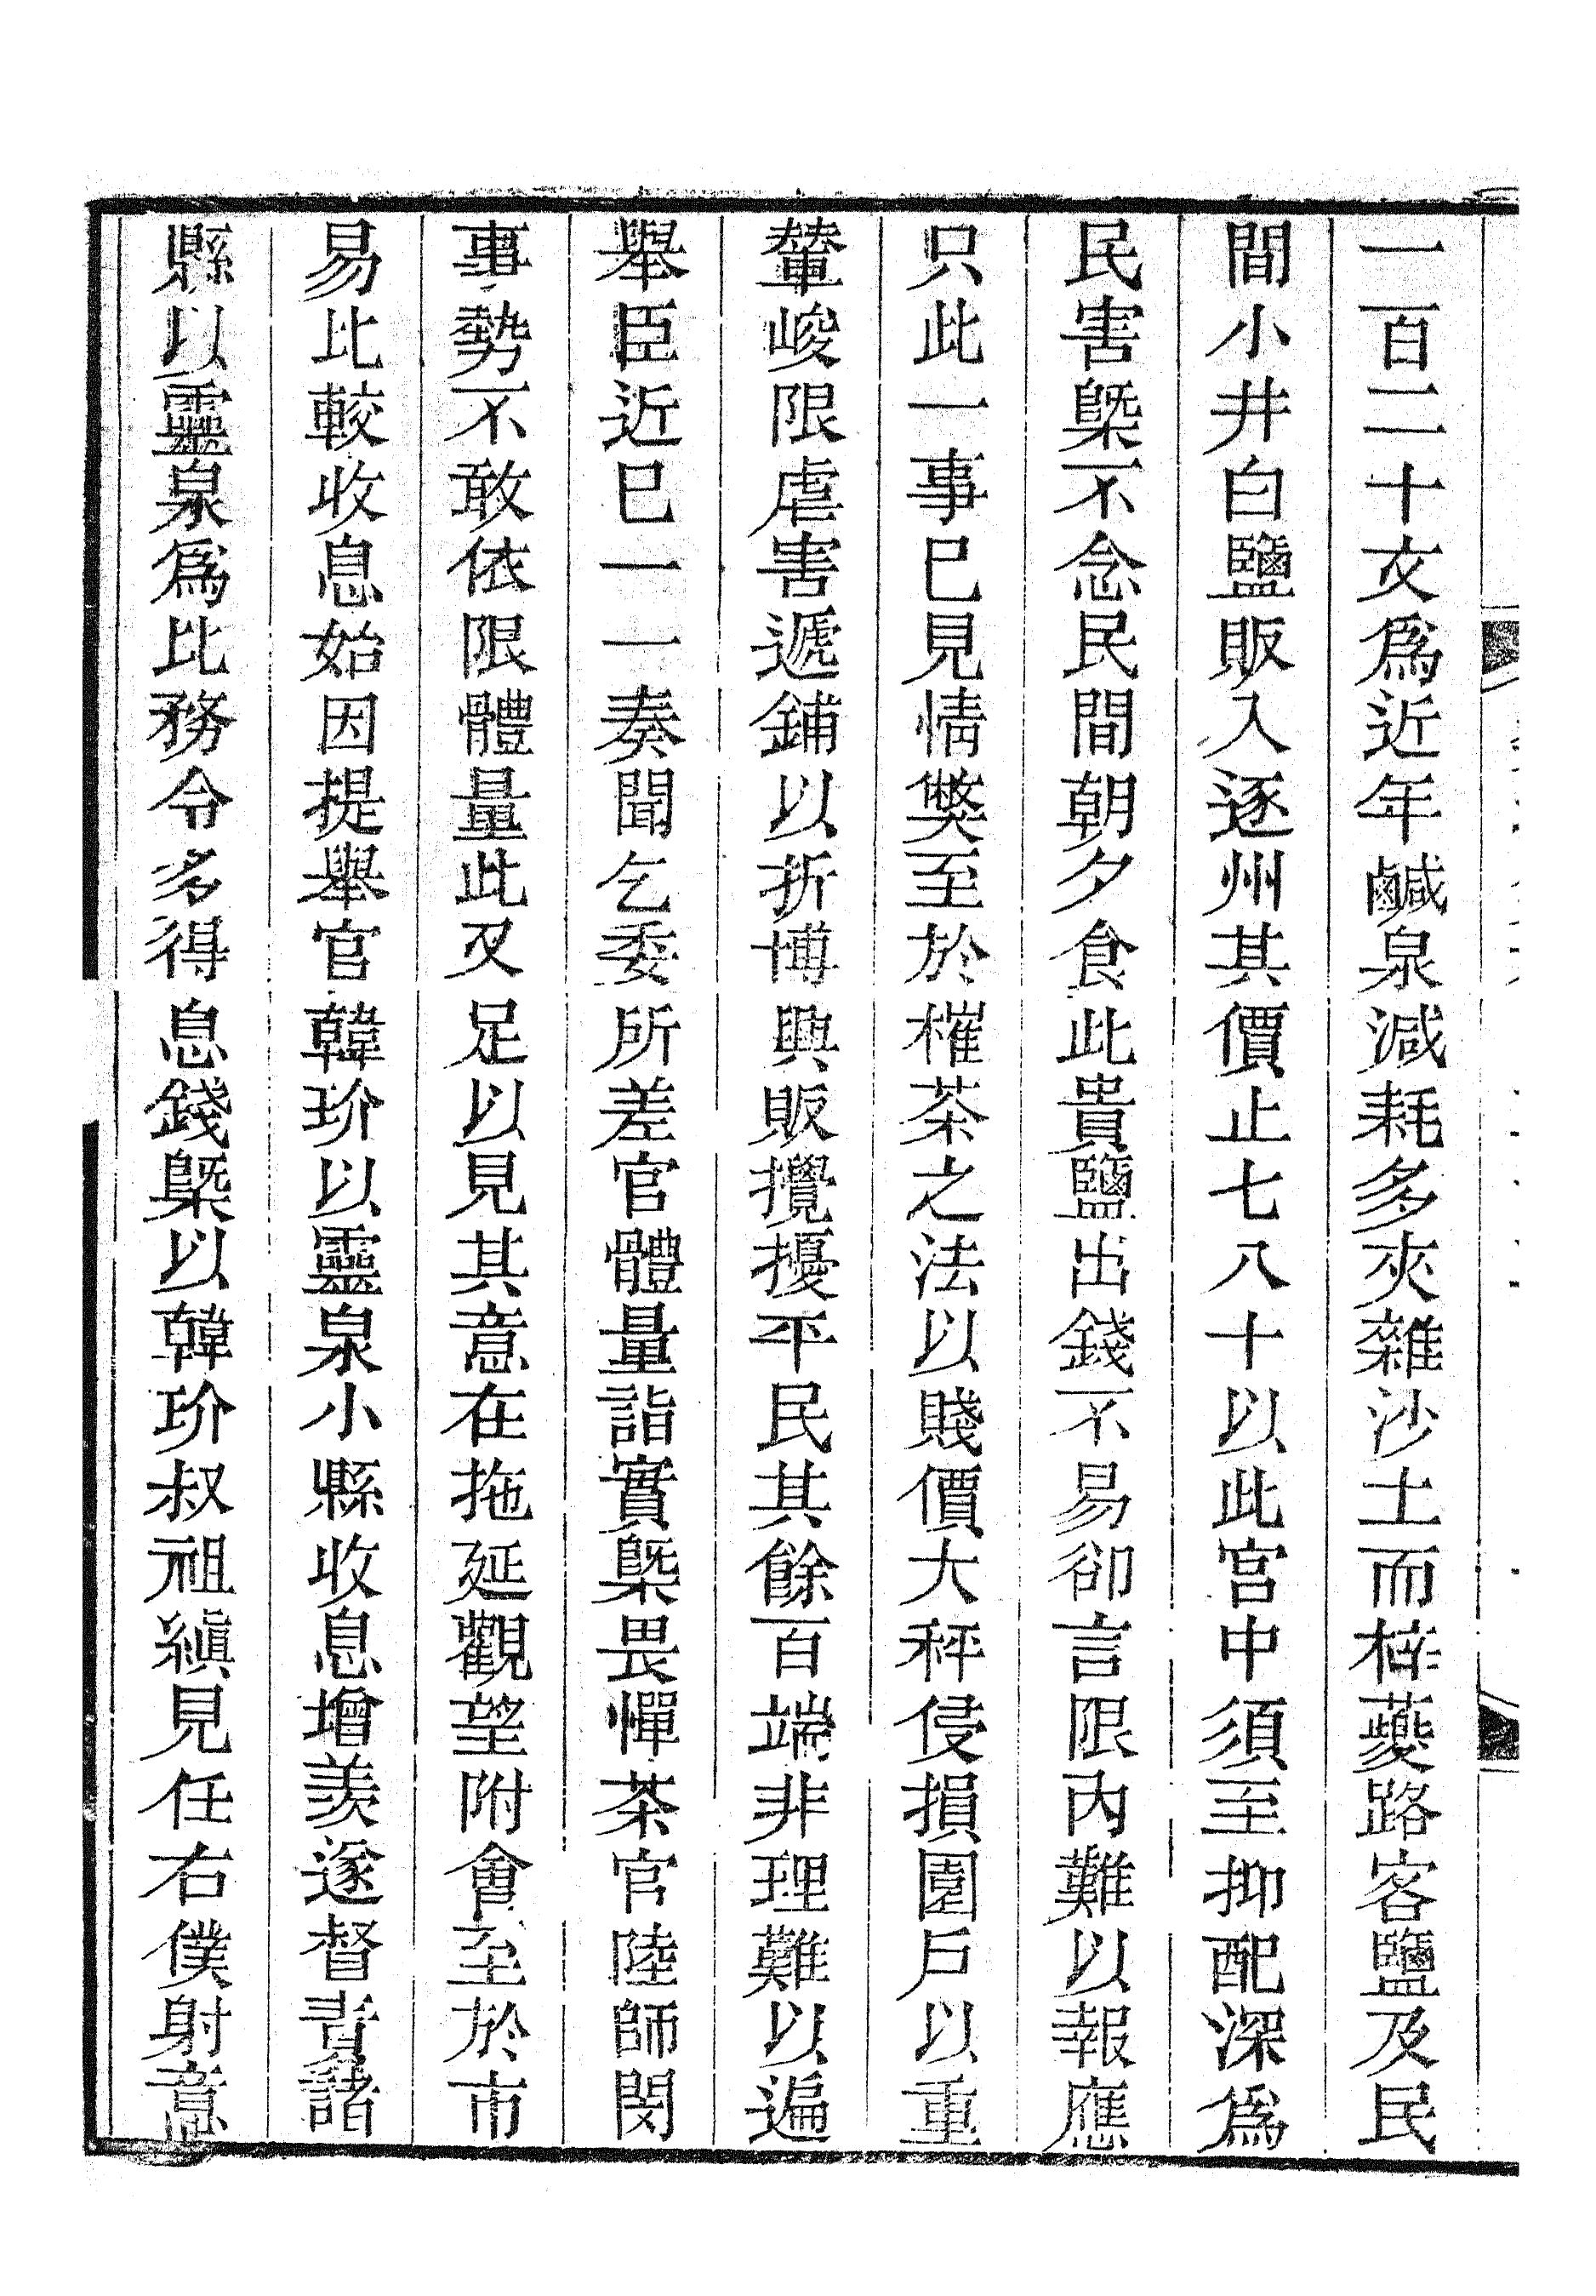 一百二十文爲近年鹹泉減耗多夾雜沙土而梓夔路客鹽及民
間小井白鹽販入逐州其價止七八十以此宮中須至抑配深爲
民害槩不念民間朝夕食此貴鹽出錢不易卻言限內難以報應
只此一事已見情獘至於榷茶之法以賤價大秤侵損園戶以重
輦峻限虐害遞鋪以折博興販攪擾平民其餘百端非理難以遍
舉臣近已一一奏聞乞委所差官體量詣實槩畏憚茶官陸師閔
事勢不敢依限體量此又足以見其意在拖延觀望附會至於市
易比較收息始因提舉官韓玠以靈泉小縣收息增羨遂督責諸
縣以靈泉爲比務令多得息錢槩以韓玠叔祖縝見任右僕射意